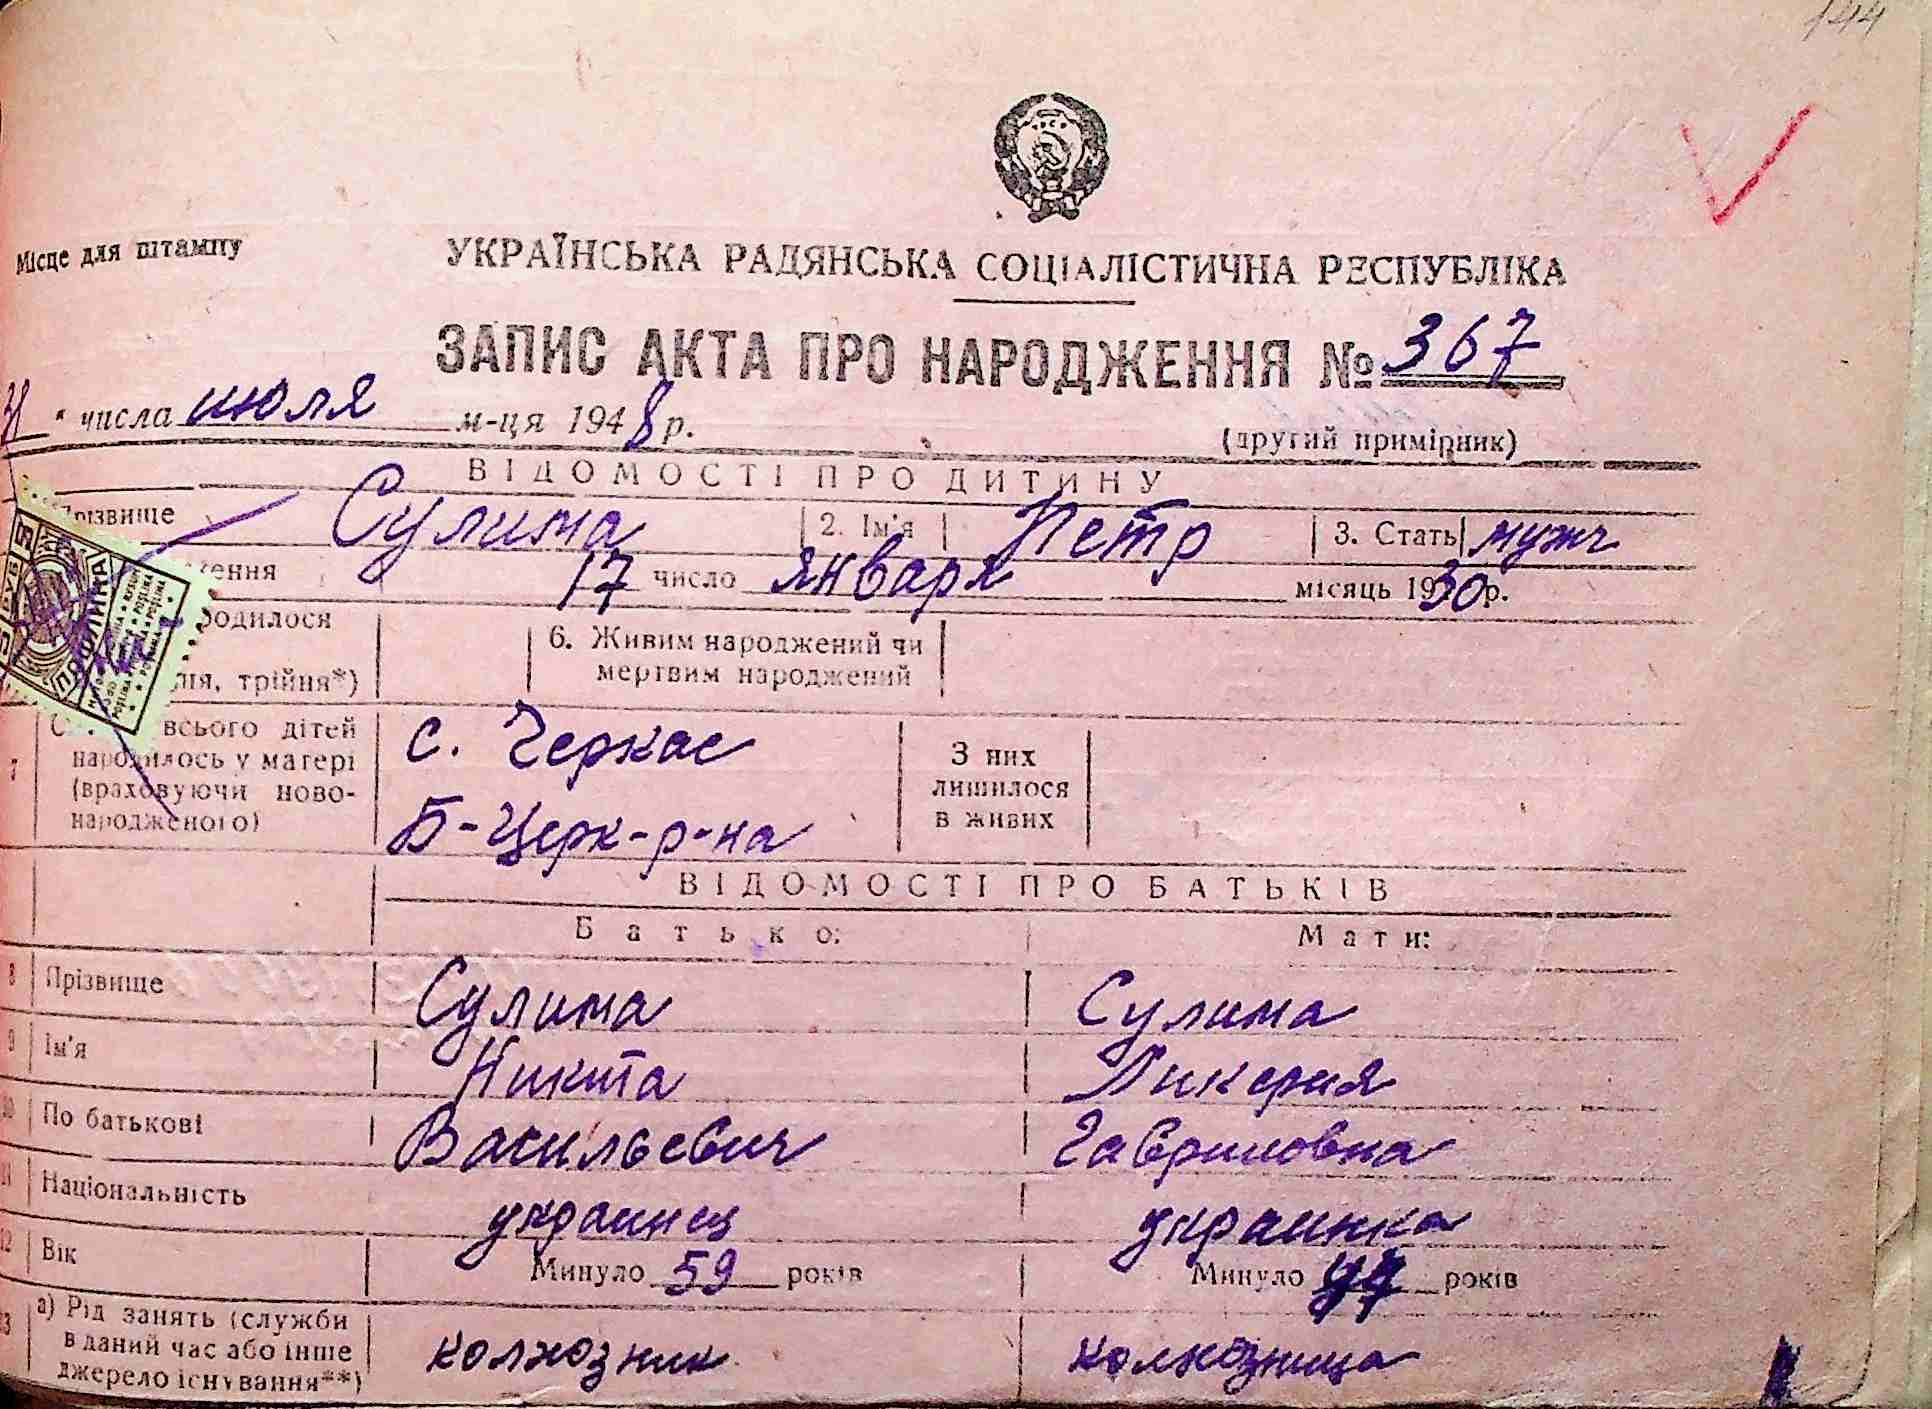 144
Місце для штампу
УКРАЇНСЬКА РАДЯНСЬКА СОЦІАЛІСТИЧНА РЕСПУБЛІКА
ЗАПИС АКТА ПРО НАРОДЖЕННЯ № 367
" числа июля м-ця 1948 р.
(другий примірник)
ВІДОМОСТІ ПРО ДИТИНУ
Прізвище Сулима 2. Ім'я Петр 3. Стать мужч
ження 17 число января місяць 1930 р.
родилося
6. Живим народжений чи
мертвим народжений
ня, трійня*)
7 всього дітей
народилось у матері
(враховуючи ново-
народженого)
с. Черкас
Б-Церк-р-на
З них
лишилося
в живих
ВІДОМОСТІ ПРО БАТЬКІВ
Батько: Мати:
8 Прізвище Сулима Сулима
9 Ім'я Никита Ликерия
10 По батькові Васильевич Гавриловна
11 Національність украинец украинка
12 Вік Минуло 59 років Минуло 47 років
13 а) Рід занять (служби
в даний час або інше
джерело існування**)
колхозник колхозница
3 РУБ 3
ПОШЛИНА